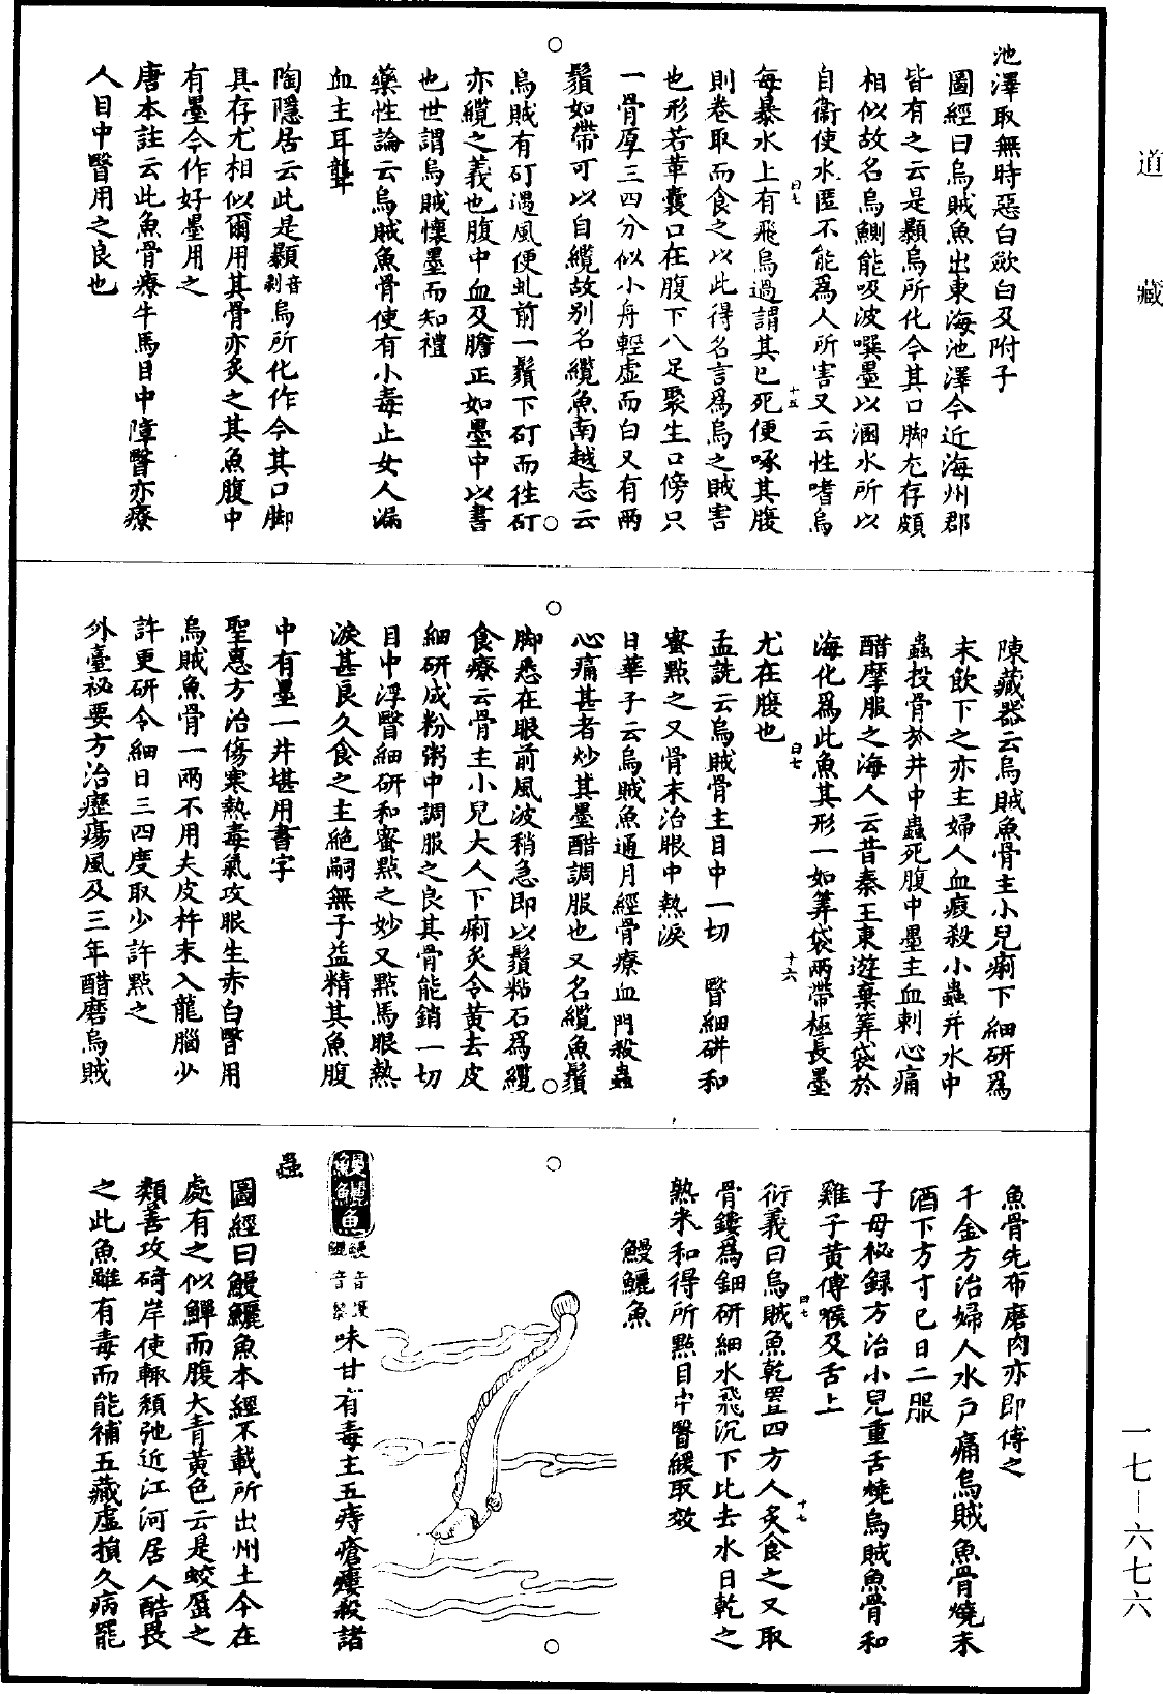 道藏
池澤取無時惡白歛白及附子
圖經曰烏賊魚出東海池澤今近海州郡
皆有之云是鸔烏所化今其口脚尤存頗
相似故名烏鰂能吸波噀墨以溷水所以
自衞使水匿不能為人所害又云性嗜烏
每暴水上有飛烏過謂其已死便啄其腹
則卷取而食之以此得名言為烏之賊害
也形若革囊口在腹下八足聚生口傍只
一骨厚三四分似小舟輕虚而白又有兩
鬚如帶可以自纜故别名纜魚南越志云
烏賊有矴遇風便虬前一鬚下矴而徃矴
亦纜之義也腹中血及膽正如墨中以書
也世謂烏賊懷墨而知禮
藥性論云烏賊魚骨使有小毒止女人漏
血主耳聾
陶隱居云此是鸔音剥烏所化作今其口脚
具存尤相似爾用其骨亦炙之其魚腹中
有墨今作好墨用之
唐本註云此魚骨療牛馬目中障瞖亦療
人目中瞖用之良也
曰七
十五
陳藏器云烏賊魚骨主小兒痢下細研為
末飲下之亦主婦人血瘕殺小蟲并水中
蟲投骨於井中蟲死腹中墨主血刺心痛
醋摩服之海人云昔秦王東遊棄筭袋於
海化為此魚其形一如筭袋兩帶極長墨
尤在腹也
孟詵云烏賊骨主目中一切瞖細研和
蜜點之又骨末治眼中熱淚
日華子云烏賊魚通月經骨療血門殺蟲
心痛甚者炒其墨醋調服也又名纜魚鬚
脚悉在眼前風波稍急即以鬚粘石為纜
食療云骨主小兒大人下痢炙令黄去皮
細研成粉粥中調服之良其骨能銷一切
目中浮瞖細研和蜜點之妙又點馬眼熱
淚甚良久食之主絶嗣無子益精其魚腹
中有墨一并堪用書字
聖惠方治傷寒熱毒氣攻眼生赤白瞖用
烏賊魚骨一兩不用夫皮杵末入龍腦少
許更研令細日三四度取少許點之
外臺祕要方治癧瘍風及三年醋磨烏賊
曰七
十六
魚骨先布磨肉赤即傅之
千金方治婦人水户痛烏賊魚骨燒末
酒下方寸匕日二服
子母秘録方治小兒重舌燒烏賊魚骨和
雞子黄傅喉及舌上
衍義曰烏賊魚乾置四方人炙食之又取
骨鏤為鈿研細水飛沉下比去水日乾之
熟米和得所點目中瞖緩取效
四七
十七
鰻鱺魚
鰻鱺魚鰻音漫鱺音黎味甘有毒主五痔瘡瘻殺諸
蟲
圖經曰鰻鱺魚本經不載所出州土今在
處有之似鱓而腹大青黄色云是蛟蜃之
類善攻碕岸使輙頽弛近江河居人酷畏
之此魚雖有毒而能補五藏虚損久病罷
一七—六七六